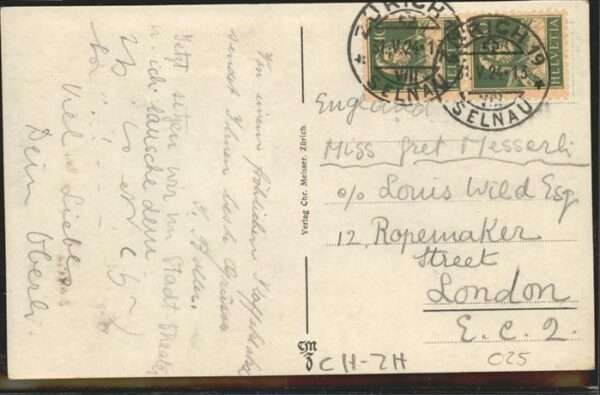 Von einem fröhlichen Kaffeeklatsch
sendet Ihnen beste Grüsse
Jetzt sitzen wir im Stadttheater
u. ich lausche dem
Viel Liebes
Dein Oberli
Verlag Chr. Meisser, Zürich
ZÜRICH 19
VIII
SELNAU
HELVETIA
ZÜRICH 19
VIII
SELNAU
HELVETIA
England
Miss Gret Messerli
c/o Louis Wild Esq
12, Ropemaker
Street
London
E.C.2.
CH-ZH
C25